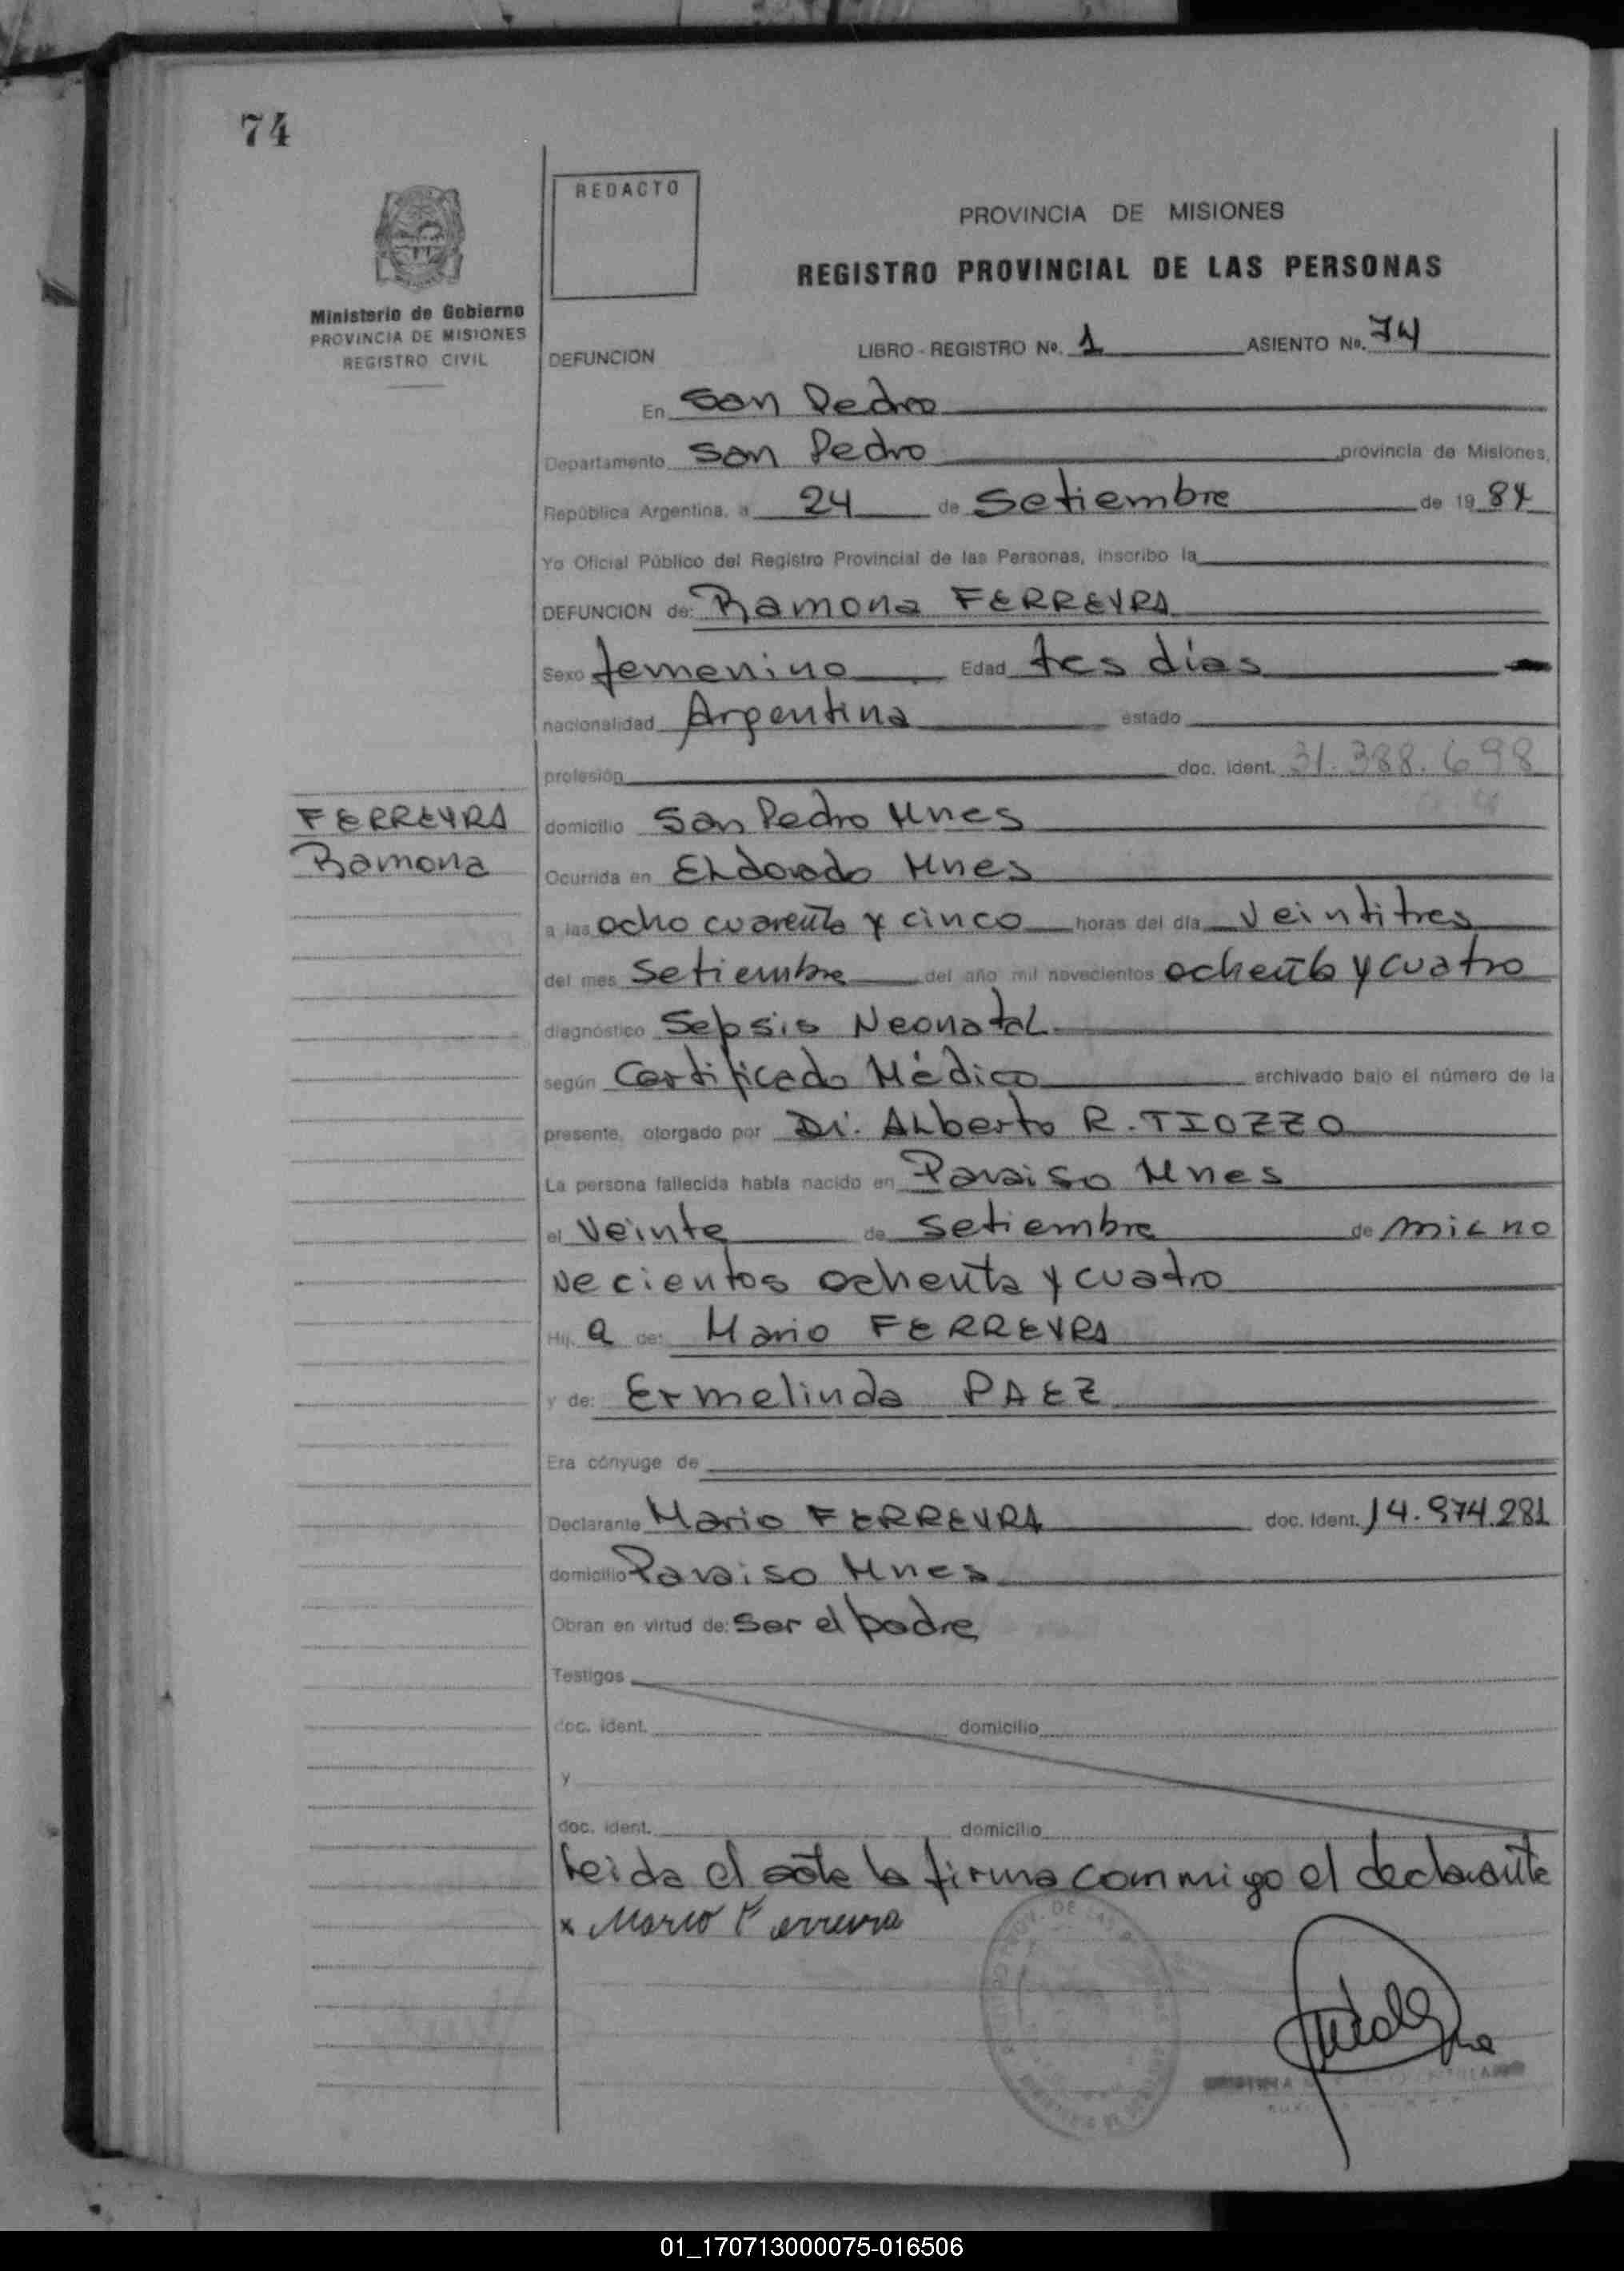 74
REDACTO
PROVINCIA DE MISIONES
REGISTRO PROVINCIAL DE LAS PERSONAS
Ministerio de Gobierno
PROVINCIA DE MISIONES
REGISTRO CIVIL
DEFUNCION LIBRO - REGISTRO Nº. 1 ASIENTO No. 74
En San Pedro
Departamento San Pedro provincia de Misiones,
República Argentina, a 24 de Setiembre de 19 84
Yo Oficial Público del Registro Provincial de las Personas, inscribo la
DEFUNCION de: Ramona FERREYRA
Sexo femenino Edad tres días
nacionalidad Argentina estado
profesión doc. ident. 31.388.698
FERREYRA
Ramona
domicilio San Pedro Mnes
Ocurrida en ELdorado Mnes
a las ocho cuarenta y cinco horas del día veintitres
del mes Setiembre del año mil novecientos ochenta y cuatro
diagnóstico Sepsis Neonatal
según Certificado Médico archivado bajo el número de la
presente, otorgado por Dr. ALberto R. TIOZZO
La persona fallecida había nacido en Paraiso Mnes
el Veinte de Setiembre de mil no
vecientos ochenta y cuatro
Hij a de: Mario FERREYRA
y de: Ermelinda PAEZ
Era cónyuge de
Declarante Mario FERREYRA doc. ident. 14.974.281
domicilio Paraiso Mnes
Obran en virtud de: Ser el padre
Testigos
doc. ident. domicilio
y
doc. ident. domicilio
Leida el acta la firma conmigo el declarante
x Mario Ferreira
01_170713000075-016506